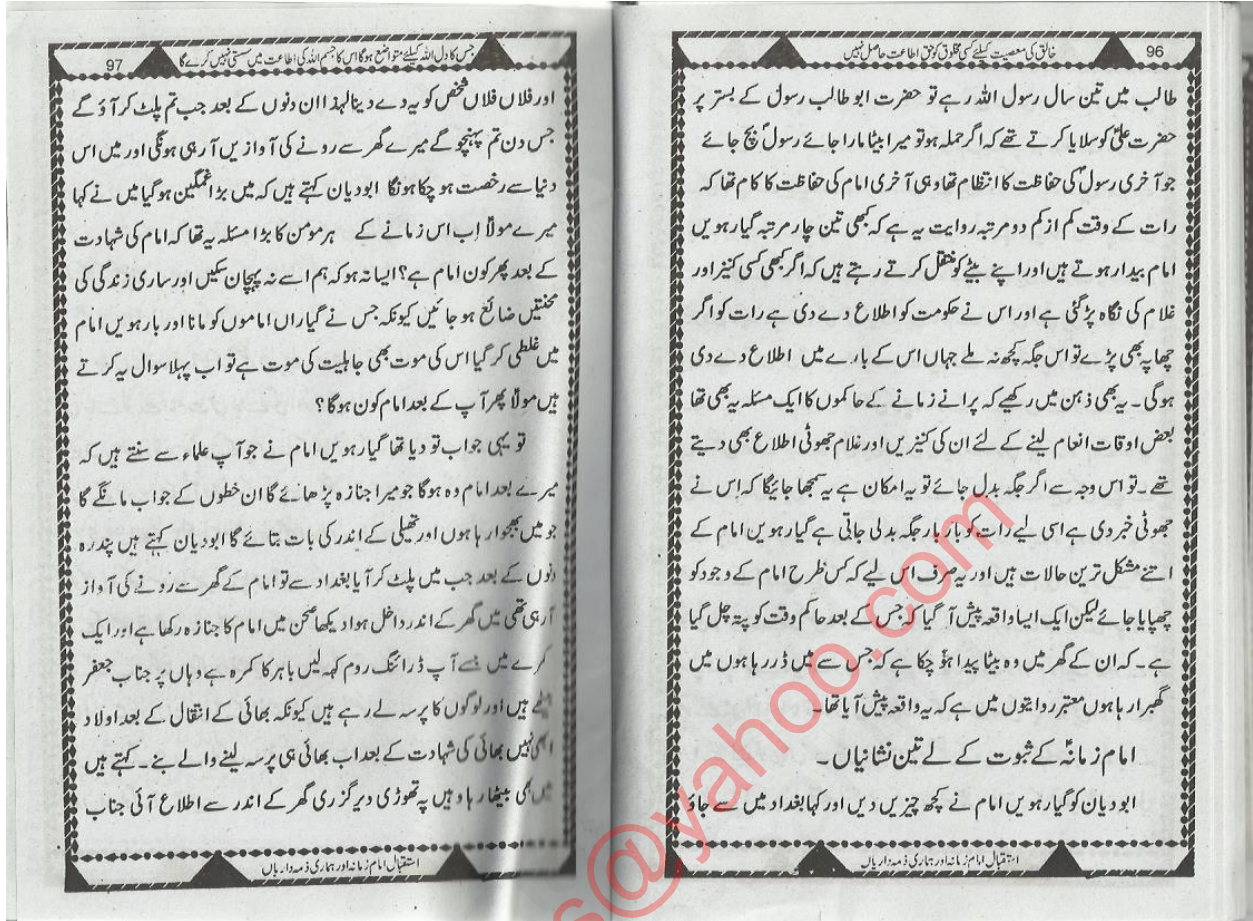 96
خالق کی معصیت کیلئے کسی مخلوق کو حق اطاعت حاصل نہیں
طالب میں تین سال رسول اللہ رہے تو حضرت ابو طالب رسول کے بستر پر
حضرت علیؑ کو سلایا کرتے تھے کہ اگر حملہ ہو تو میرا بیٹا مارا جائے رسولؐ بچ جائے
جو آخری رسولؐ کی حفاظت کا انتظام تھا وہی آخری امام کی حفاظت کا کام تھا کہ
رات کے وقت کم از کم دو مرتبہ روایت یہ ہے کہ کبھی تین چار مرتبہ گیارہویں
امام بیدار ہوتے ہیں اور اپنے بیٹے کو منتقل کرتے رہتے ہیں کہ اگر کبھی کسی کنیز اور
غلام کی نگاہ پڑ گئی ہے اور اس نے حکومت کو اطلاع دے دی ہے رات کو اگر
چھاپہ بھی پڑے تو اس جگہ کچھ نہ ملے جہاں اس کے بارے میں اطلاع دے دی
ہوگی۔ یہ بھی ذہن میں رکھیے کہ پرانے زمانے کے حاکموں کا ایک مسئلہ یہ بھی تھا
بعض اوقات انعام لینے کے لئے ان کی کنیزیں اور غلام جھوٹی اطلاع بھی دیتے
تھے۔ تو اس وجہ سے اگر جگہ بدل جائے تو یہ امکان ہے یہ سمجھا جائیگا کہ اس نے
جھوٹی خبر دی ہے اسی لیے رات کو بار بار جگہ بدلی جاتی ہے گیارہویں امام کے
اتنے مشکل ترین حالات ہیں اور یہ صرف اس لیے کہ کس طرح امام کے وجود کو
چھپایا جائے لیکن ایک ایسا واقعہ پیش آ گیا کہ جس کے بعد حاکم وقت کو پتہ چل گیا
ہے۔ کہ ان کے گھر میں وہ بیٹا پیدا ہو چکا ہے کہ جس سے میں ڈر رہا ہوں میں
گھبرا رہا ہوں معتبر روایتوں میں ہے کہ یہ واقعہ پیش آیا تھا۔
امام زمانہؑ کے ثبوت کے لے تین نشانیاں۔
ابو دیان کو گیارہویں امام نے کچھ چیزیں دیں اور کہا بغداد میں سے جاؤ
استقبال امام زمانہ اور ہماری ذمہ داریاں
97
جس کا دل اللہ کیلئے متواضع ہوگا اس کا جسم اللہ کی اطاعت میں سستی نہیں کرے گا
اور فلاں فلاں شخص کو یہ دے دینا لہذا ان دنوں کے بعد جب تم پلٹ کر آؤ گے
جس دن تم پہنچو گے میرے گھر سے رونے کی آوازیں آ رہی ہونگی اور میں اس
دنیا سے رخصت ہو چکا ہونگا ابو دیان کہتے ہیں کہ میں بڑا غمگین ہو گیا میں نے کہا
میرے مولاؑ اب اس زمانے کے ہر مومن کا بڑا مسئلہ یہ تھا کہ امام کی شہادت
کے بعد پھر کون امام ہے؟ ایسا نہ ہو کہ ہم اسے نہ پہچان سکیں اور ساری زندگی کی
محنتیں ضائع ہو جائیں کیونکہ جس نے گیاراں اماموں کو مانا اور بارہویں امام
میں غلطی کر گیا اس کی موت بھی جاہلیت کی موت ہے تو اب پہلا سوال یہ کرتے
ہیں مولاؑ پھر آپ کے بعد امام کون ہوگا؟
تو یہی جواب تو دیا تھا گیارہویں امام نے جو آپ علماء سے سنتے ہیں کہ
میرے بعد امام وہ ہوگا جو میرا جنازہ پڑھائے گا ان خطوں کے جواب مانگے گا
جو میں بھجوا رہا ہوں اور تھیلی کے اندر کی بات بتائے گا ابو دیان کہتے ہیں پندرہ
دنوں کے بعد جب میں پلٹ کر آیا بغداد سے تو امام کے گھر سے رونے کی آواز
آ رہی تھی میں گھر کے اندر داخل ہوا دیکھا صحن میں امام کا جنازہ رکھا ہے اور ایک
کمرے میں جسے آپ ڈرائنگ روم کہہ لیں باہر کا کمرہ ہے وہاں پر جناب جعفر
ہیں اور لوگوں کا پرسہ لے رہے ہیں کیونکہ بھائی کے انتقال کے بعد اولاد
نہیں بھائی کی شہادت کے بعد اب بھائی ہی پرسہ لینے والے بنے۔ کہتے ہیں
میں بھی بیٹھا رہا وہیں پہ تھوڑی دیر گزری گھر کے اندر سے اطلاع آئی جناب
استقبال امام زمانہ اور ہماری ذمہ داریاں
s@yahoo.com